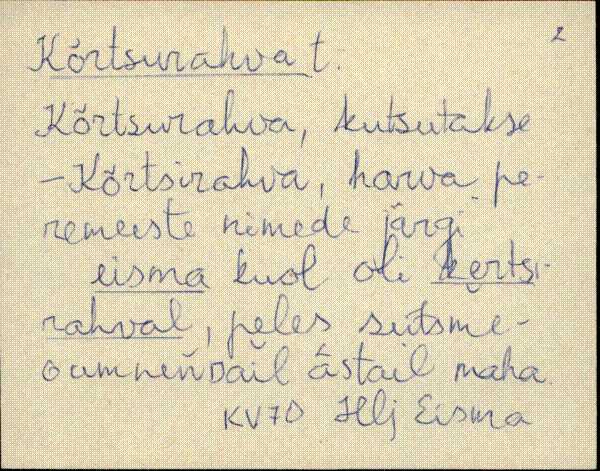 2
Kõrtsurahva t.
Kõrtsurahva, kutsutakse
– Kõrtsirahva, harva pe-
remeeste nimede järgi
eisma kuol oli kẹrtsi-
rahval, pẹles seitsme-
oumneńDaĭl āstail maha
KV70 Hlj Eisma